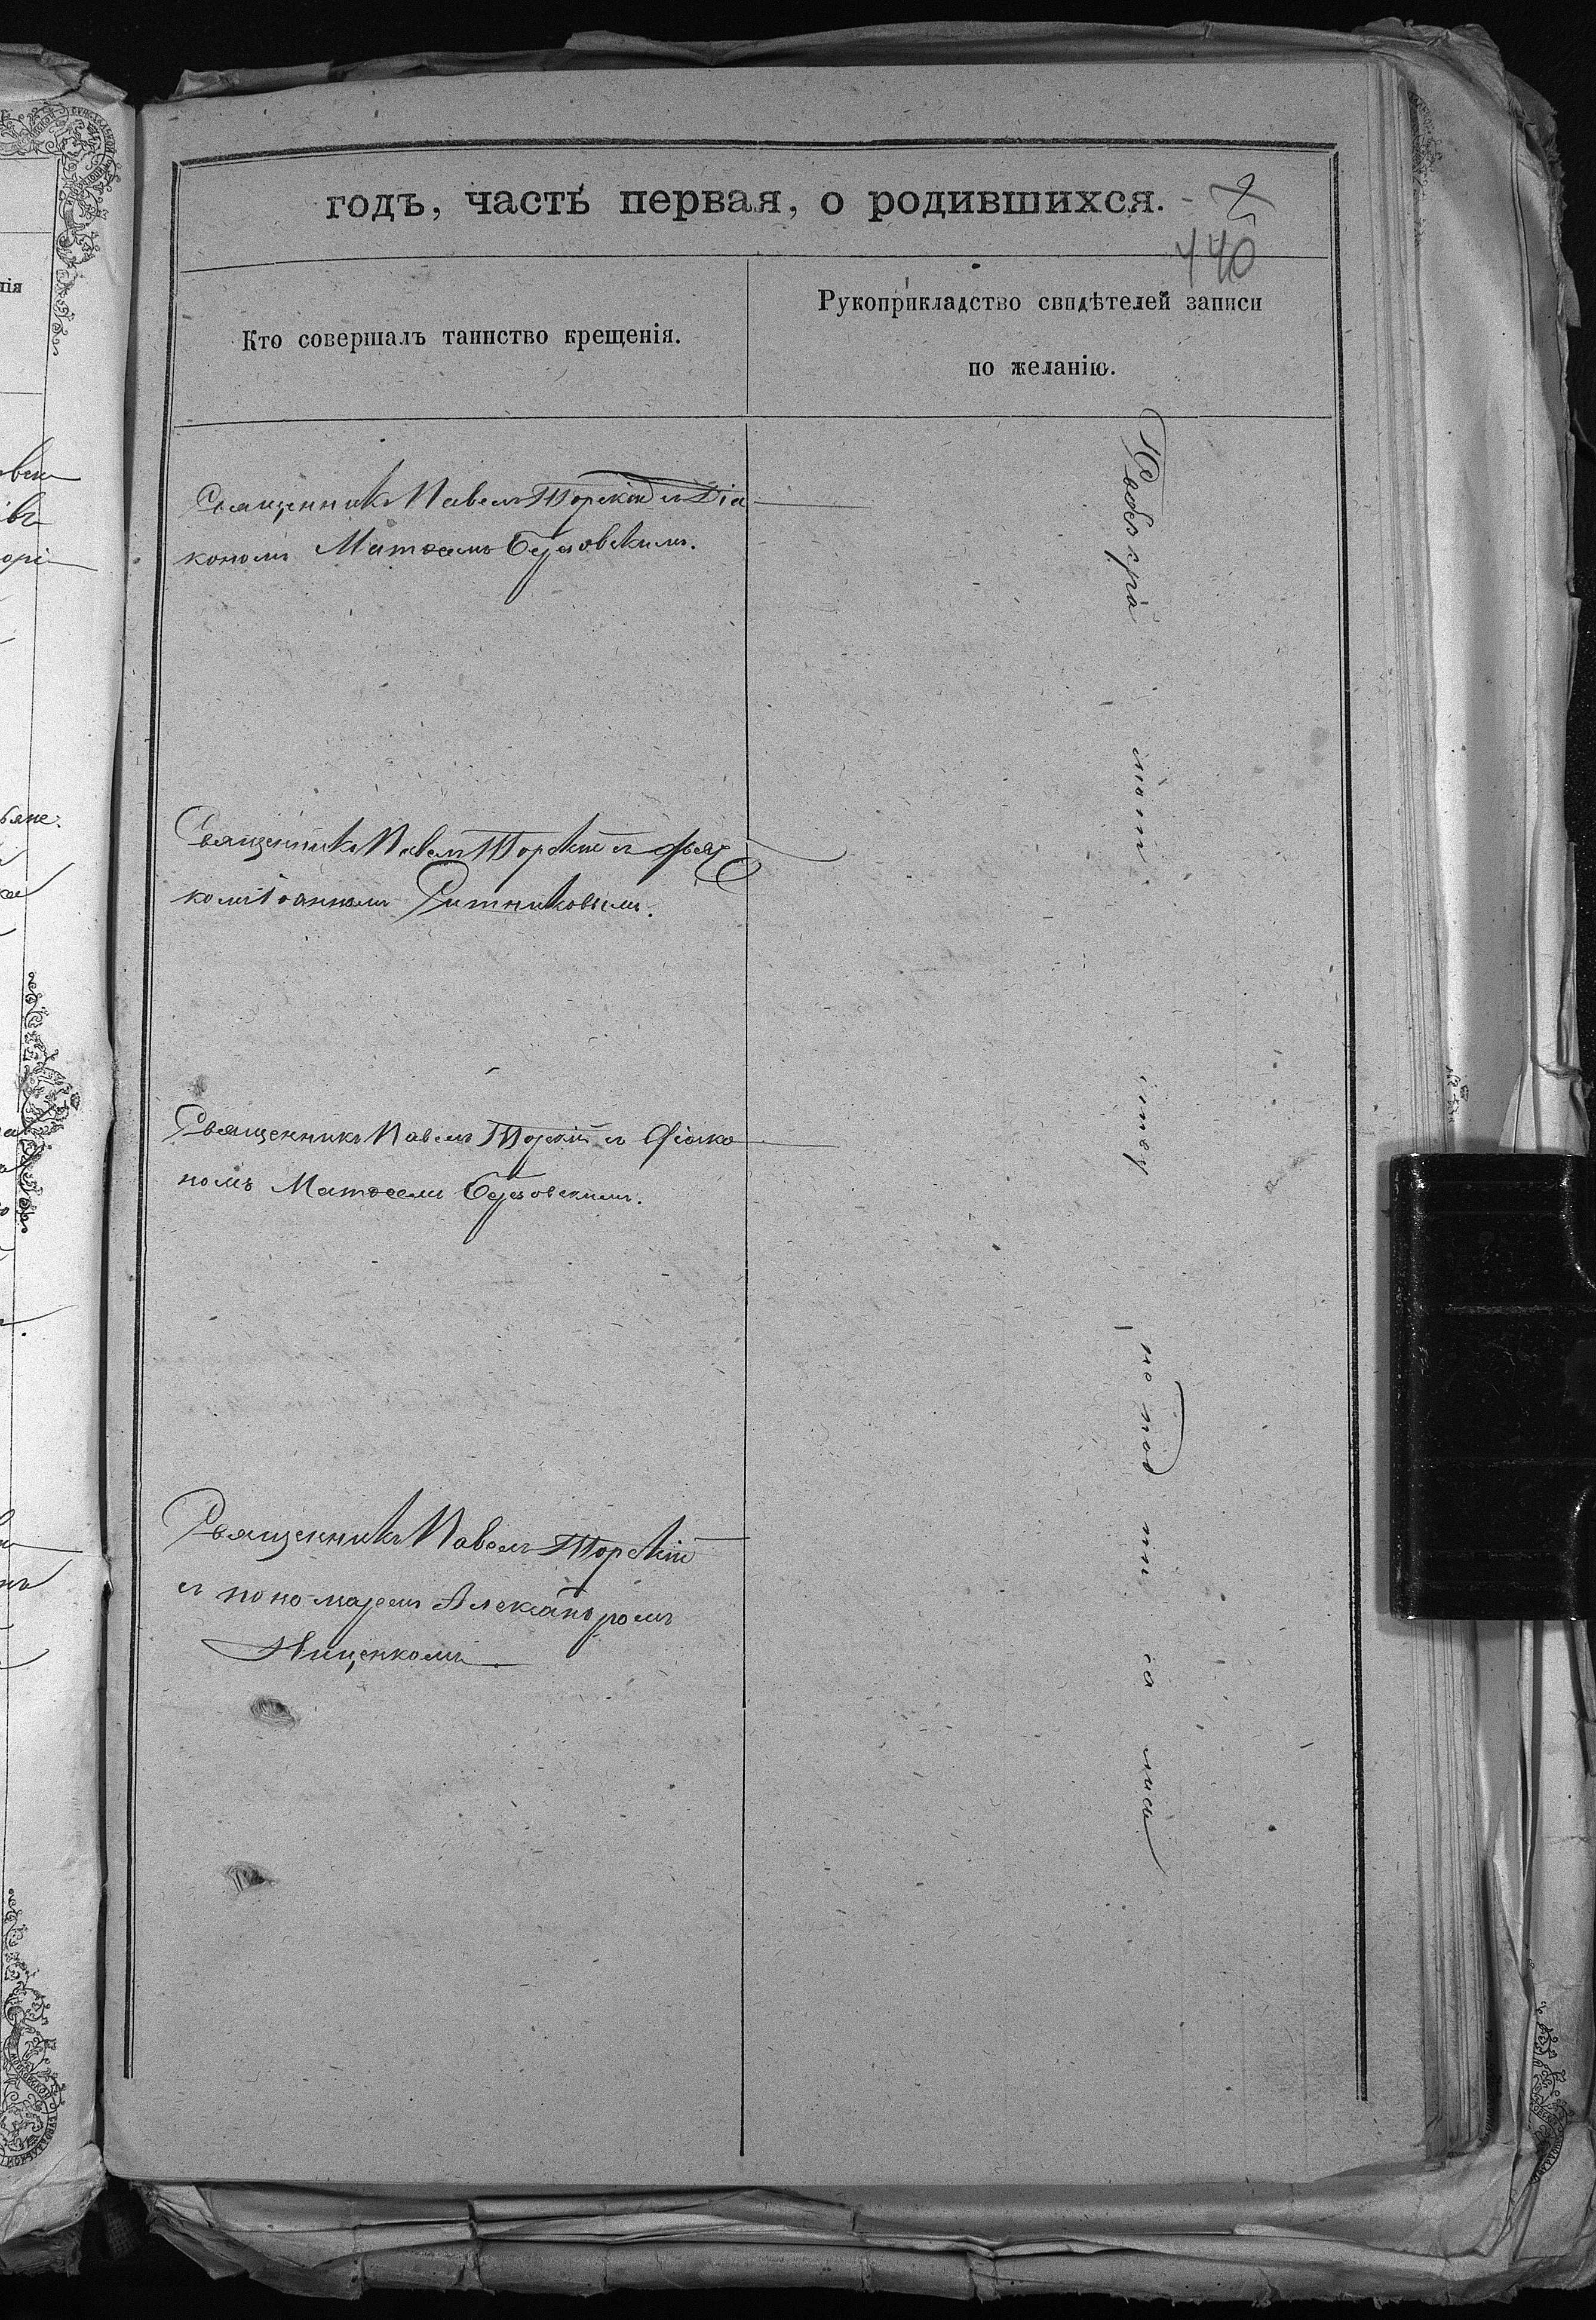 годъ, часть первая, о родившихся.
440
Кто совершалъ таинство крещенія.
Рукоприкладство свидѣтелей записи
по желанію.
Священникъ Павелъ Торскій съ Діа
кономъ Матѳеемъ Березовскимъ.
Священникъ Павелъ Торскій съ Дья
комъ Іоанномъ Ситниковымъ.
Священникъ Павелъ Торскій съ Діако
номъ Матѳеемъ Березовскимъ.
Священникъ Павелъ Торскій
съ пономаремъ Александромъ
Ниценкомъ.